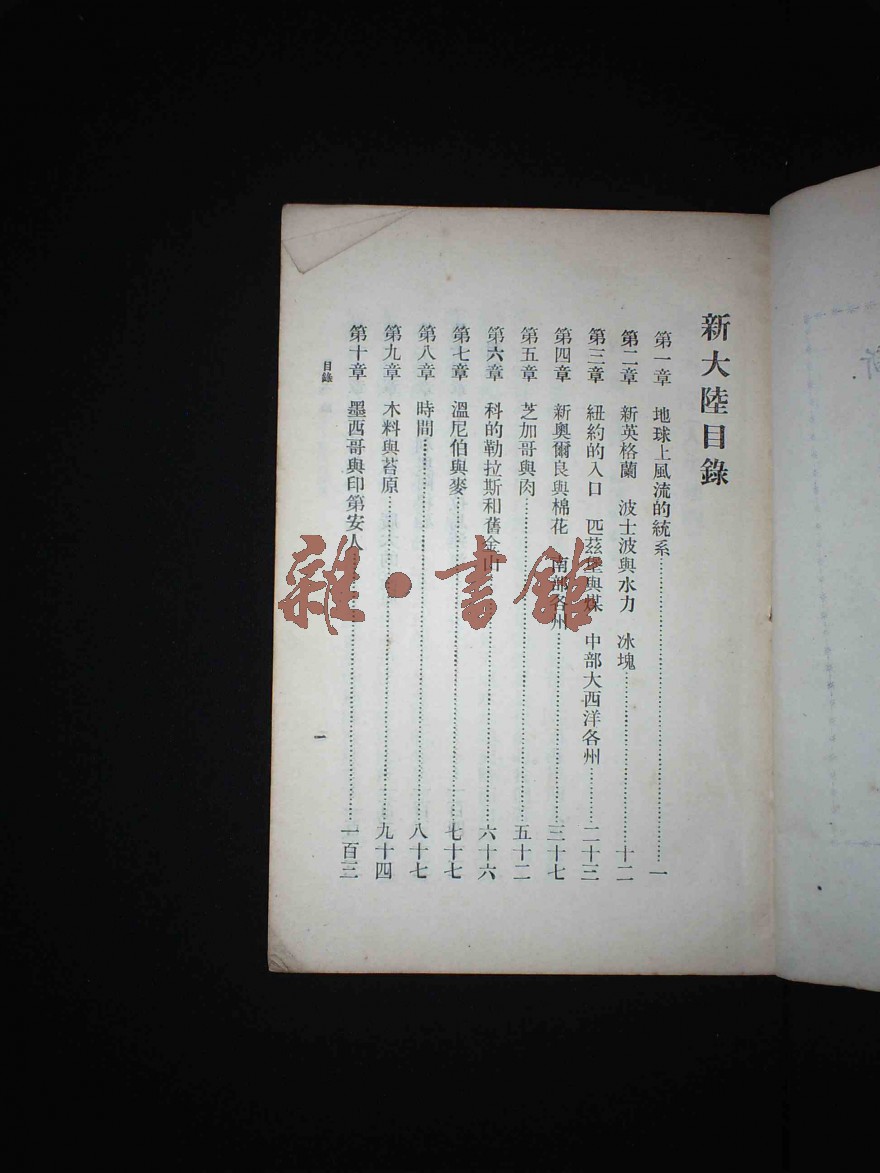 新大陸目錄
第一章 地球上風流的統系……一
第二章 新英格蘭 波士波與水力 冰塊……十二
第三章 紐約的入口 匹茲堡與煤 中部大西洋各州……二十三
第四章 新奧爾良與棉花 南部各州……三十七
第五章 芝加哥與肉……五十二
第六章 科的勒拉斯和舊金山……六十六
第七章 溫尼伯與麥……七十七
第八章 時間……八十七
第九章 木料與苔原……九十四
第十章 墨西哥與印第安人……一百三
目錄
一
雜·書館